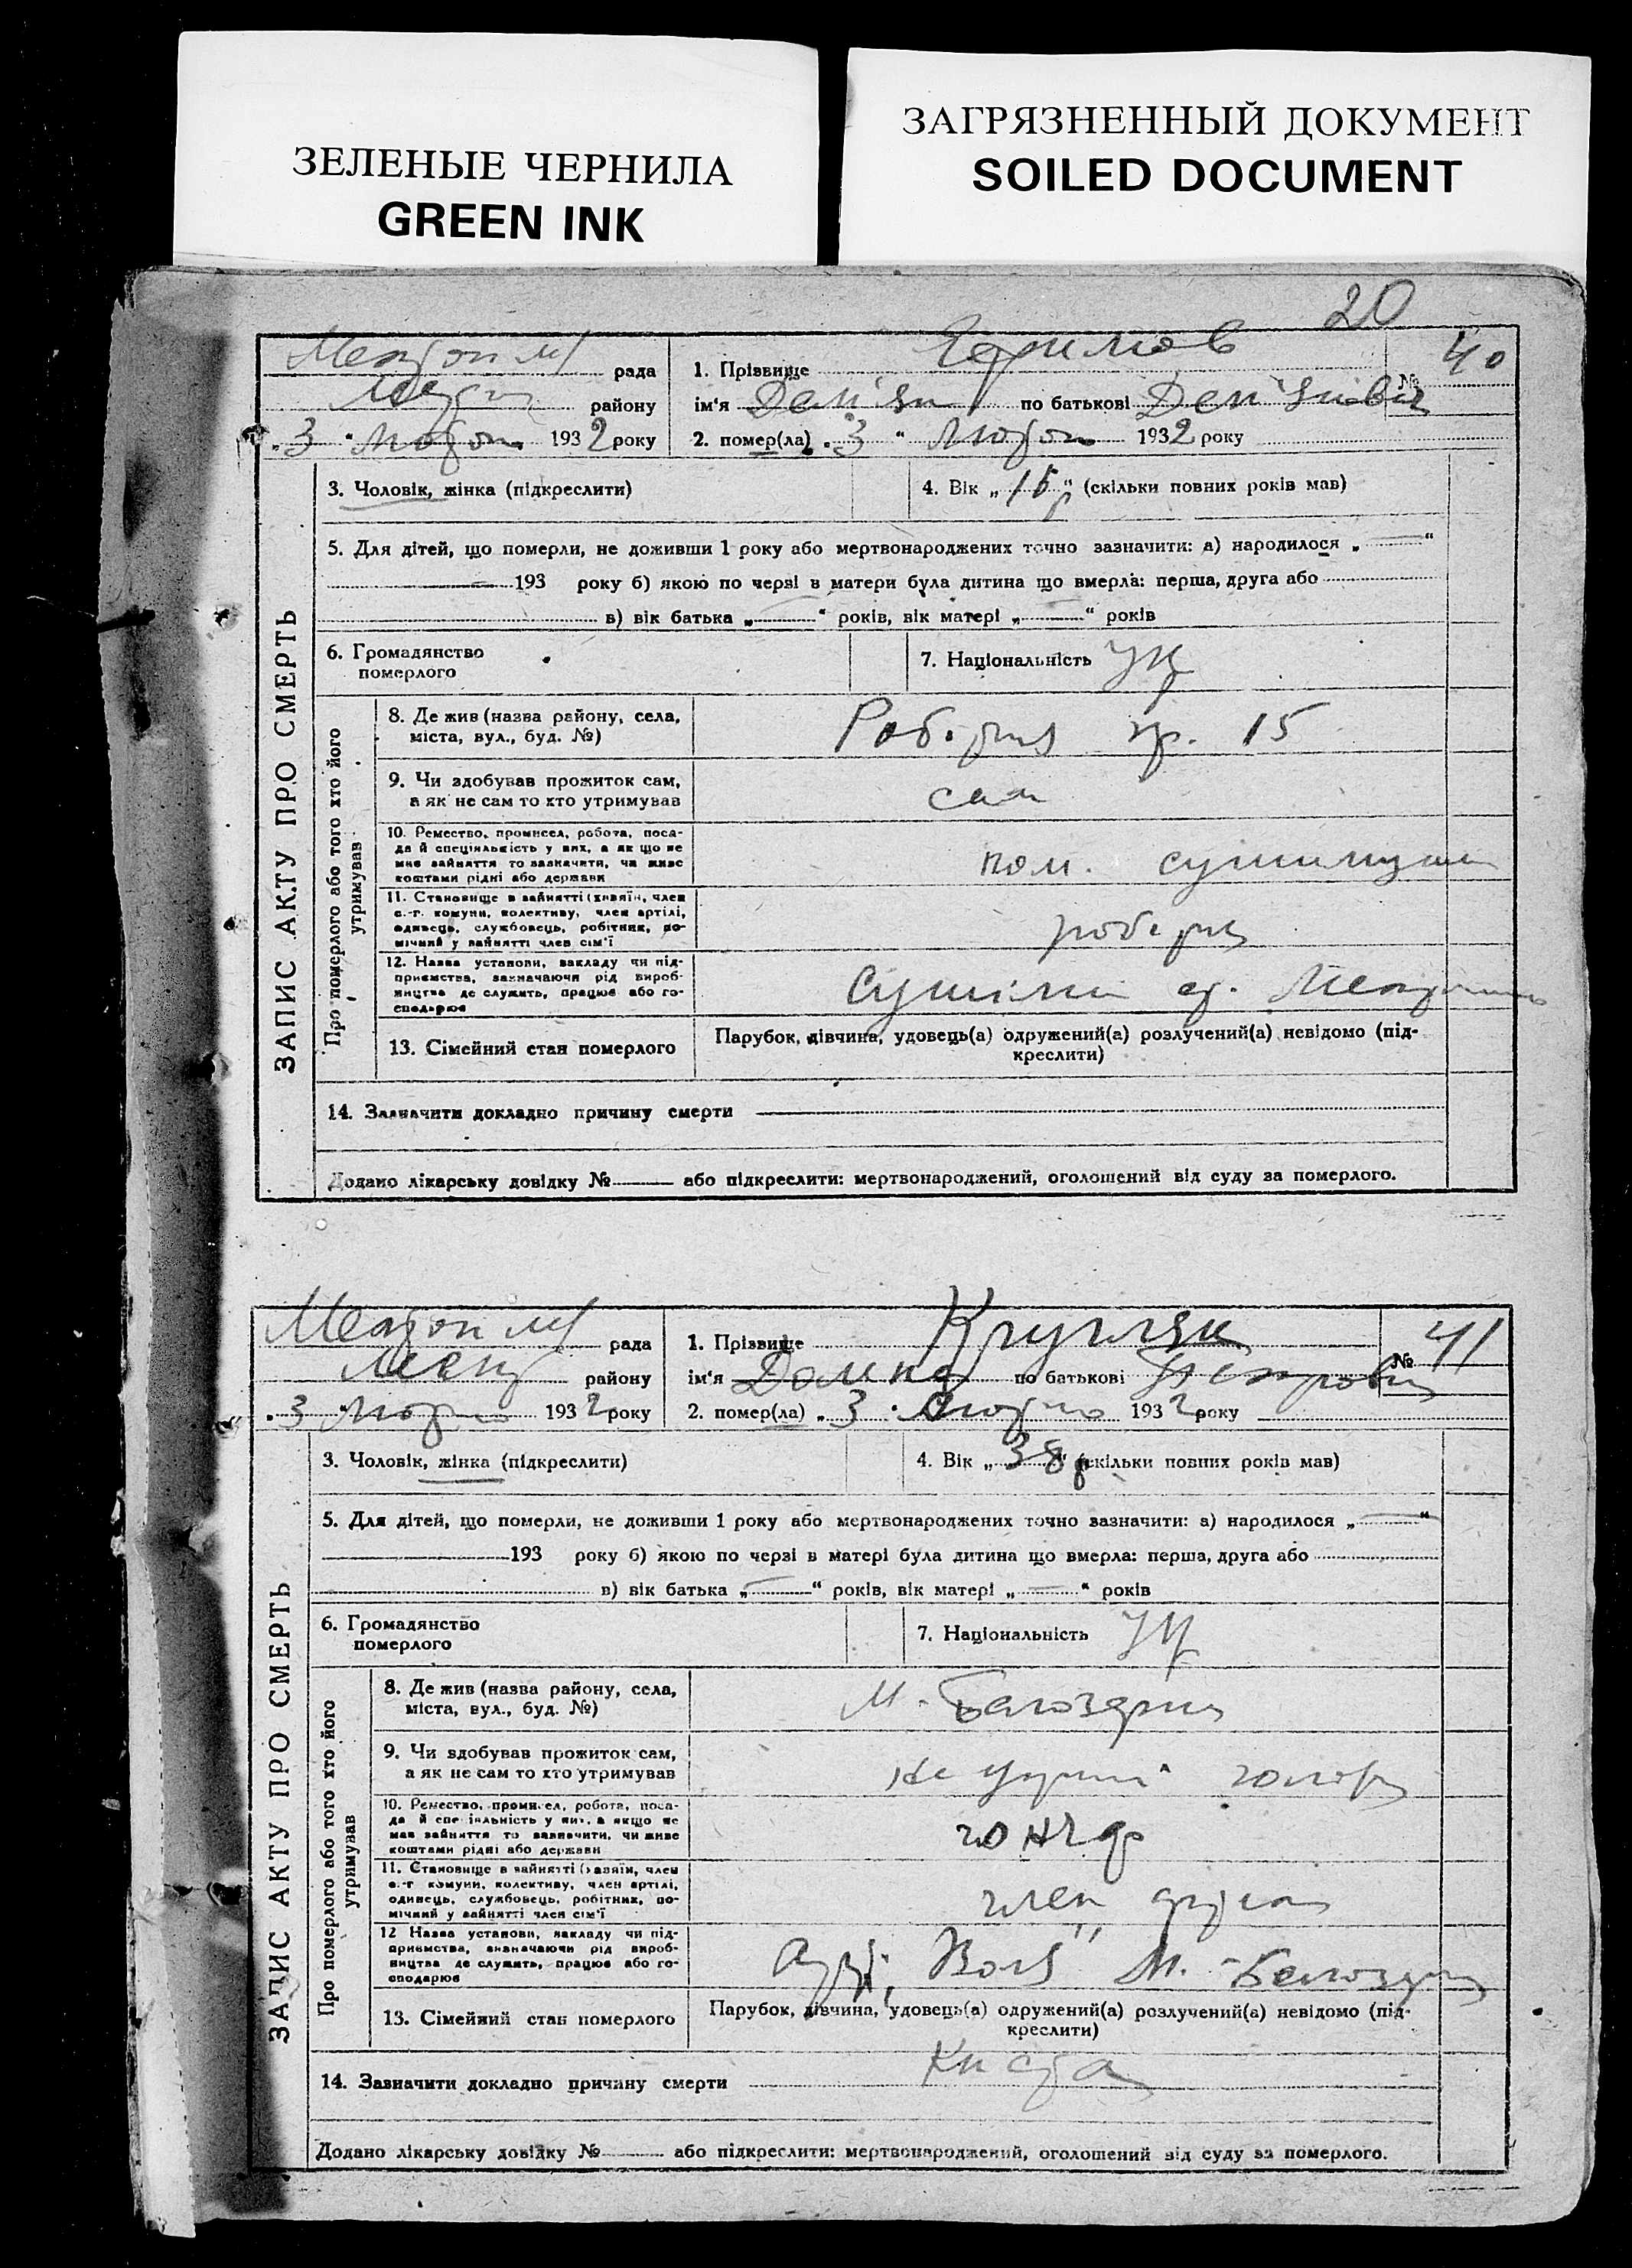 ЗЕЛЕНЫЕ ЧЕРНИЛА
GREEN INK
ЗАГРЯЗНЕННЫЙ ДОКУМЕНТ
SOILED DOCUMENT
20
ЗАПИС АКТУ ПРО СМЕРТЬ
рада
1. Прізвище
№ 40
району
ім'я Дем'ян по батькові Дем'янович
3 193 2 року
2. помер(ла) 3 1932 року
3. Чоловік, жінка (підкреслити)
4. Вік „ 15 “ (скільки повних років мав)
5. Для дітей, що померли, не доживши 1 року або мертвонароджених точно зазначити: а) народилося „ “
193 року б) якою по черзі в матери була дитина що вмерла: перша, друга або
в) вік батька „ “ років, вік матері „ “ років
6. Громадянство
померлого
7. Національність Укр
Про померлого або того хто його
утримував
8. Де жив (назва району, села,
міста, вул., буд. №)
15
9. Чи здобував прожиток сам,
а як не сам то хто утримував
сам
10. Ремество, промисел, робота, поса-
да й спеціяльність у них, а як що не
мав зайняття то зазначити, чи живе
коштами рідні або держави
пом.
11. Становище в зайнятті (хазяїн, член
с.-г. комуни, колективу, член артілі,
одинець, службовець, робітник, по-
мічний у зайнятті член сім'ї
12. Назва установи, закладу чи під-
приємства, зазначаючи рід вироб-
ництва де служить, працює або го-
сподарює
13. Сімейний стан померлого
Парубок, дівчина, удовець(а) одружений(а) розлучений(а) невідомо (під-
креслити)
14. Зазначити докладно причину смерти
Додано лікарську довідку № або підкреслити: мертвонароджений, оголошений від суду за померлого.
ЗАПИС АКТУ ПРО СМЕРТЬ
рада
1. Прізвище Кругляк
№ 41
району
ім'я Домна по батькові Петровна
3 193 2 року
2. помер(ла) 3 193 2 року
3. Чоловік, жінка (підкреслити)
4. Вік „ 38 “ (скільки повних років мав)
5. Для дітей, що померли, не доживши 1 року або мертвонароджених точно зазначити: а) народилося „ “
193 року б) якою по черзі в матері була дитина що вмерла: перша, друга або
в) вік батька „ “ років, вік матері „ “ років
6. Громадянство
померлого
7. Національність Укр
Про померлого або того хто його
утримував
8. Де жив (назва району, села,
міста, вул., буд. №)
М.
9. Чи здобував прожиток сам,
а як не сам то хто утримував
10. Ремество, промисел, робота, поса-
да й спеціяльність у них, а якщо не
мав зайняття то зазначити, чи живе
коштами рідні або держави
11. Становище в зайнятті (хазяїн, член
с.-г. комуни, колективу, член артілі,
одинець, службовець, робітник, по-
мічний у зайнятті член сім'ї
член
12 Назва установи, закладу чи під-
приємства, зазначаючи рід вироб-
ництва де служить, працює або го-
сподарює
М.
13. Сімейний стан померлого
Парубок, дівчина, удовець(а) одружений(а) розлучений(а) невідомо (під-
креслити)
14. Зазначити докладно причину смерти
Додано лікарську довідку № або підкреслити: мертвонароджений, оголошений від суду за померлого.